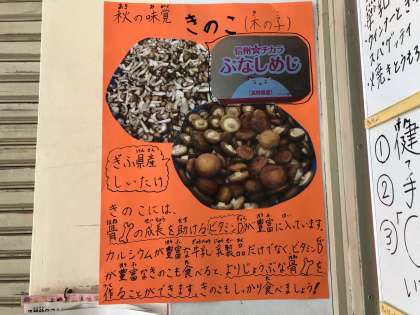 秋の味覚
きのこ(木の子)
信州☆チカラ
ぶなしめじ
ぎふ県産
しいたけ
きのこには、
骨の成長を助けるビタミンDが豊富に入っています。
カルシウムが豊富な牛乳・乳製品だけでなく、ビタミンD
が豊富なきのこも食べると、よりじょうぶな骨を
作ることができます。きのこもしっかり食べましょう!
①健
②手
③